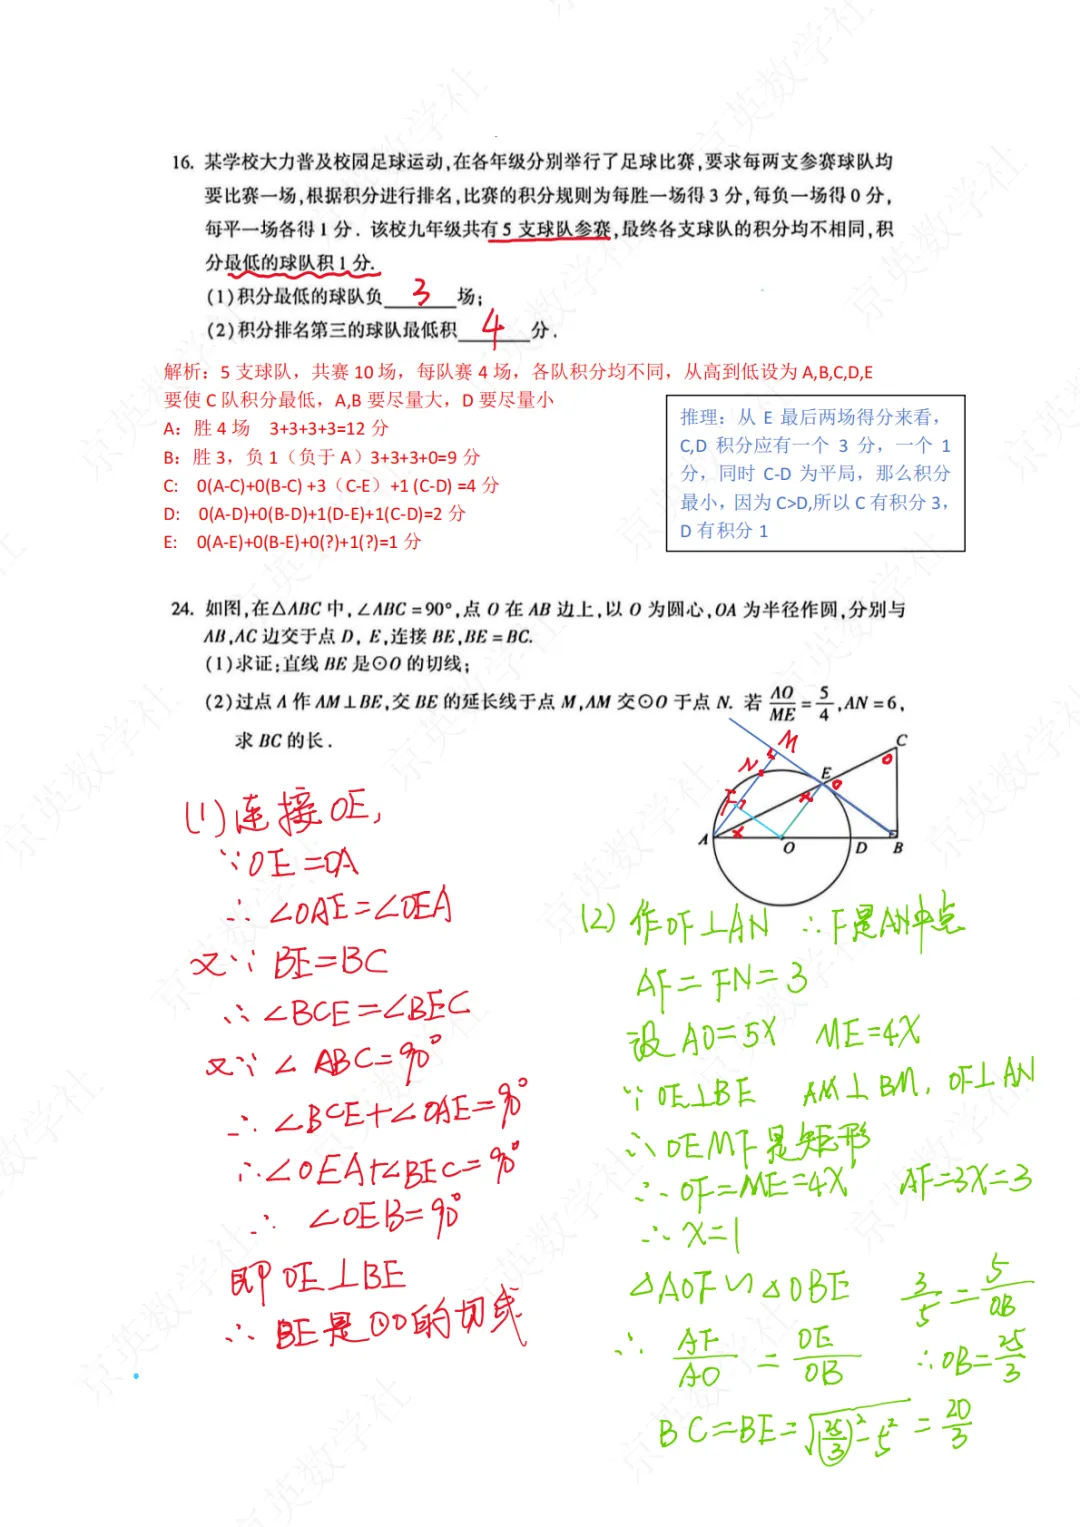 16. 某学校大力普及校园足球运动,在各年级分别举行了足球比赛,要求每两支参赛球队均
要比赛一场,根据积分进行排名,比赛的积分规则为每胜一场得3分,每负一场得0分,
每平一场各得1分. 该校九年级共有5支球队参赛,最终各支球队的积分均不相同,积
分最低的球队积1分.
(1)积分最低的球队负 3 场;
(2)积分排名第三的球队最低积 4 分.
解析：5支球队，共赛10场，每队赛4场，各队积分均不同，从高到低设为A,B,C,D,E
要使C队积分最低，A,B要尽量大，D要尽量小
A：胜4场 3+3+3+3=12分
B：胜3，负1（负于A）3+3+3+0=9分
C: 0(A-C)+0(B-C) +3（C-E）+1 (C-D) =4分
D: 0(A-D)+0(B-D)+1(D-E)+1(C-D)=2分
E: 0(A-E)+0(B-E)+0(?)+1(?)=1分
推理：从 E 最后两场得分来看，
C,D 积分应有一个 3 分，一个 1
分，同时 C-D 为平局，那么积分
最小，因为 C>D,所以 C 有积分 3，
D 有积分 1
24. 如图,在△ABC中,∠ABC=90°,点O在AB边上,以O为圆心,OA为半径作圆,分别与
AB,AC边交于点D, E,连接BE,BE=BC.
(1)求证:直线BE是⊙O的切线;
(2)过点A作AM⊥BE,交BE的延长线于点M,AM交⊙O于点N. 若 AO/ME = 5/4 ,AN=6,
求BC的长.
M
C
N
E
F
A
O
D
B
(1)连接OE,
∵OE=OA
∴∠OAE=∠OEA
又∵BE=BC
∴∠BCE=∠BEC
又∵∠ABC=90°
∴∠BCE+∠OAE=90°
∴∠OEA+∠BEC=90°
∴∠OEB=90°
即OE⊥BE
∴BE是⊙O的切线
(2) 作OF⊥AN ∴F是AN中点
AF=FN=3
设AO=5X ME=4X
∵OE⊥BE AM⊥BM, OF⊥AN
∴OEMF是矩形
∴OF=ME=4X AF=3X=3
∴X=1
△AOF∽△OBE 3/5=5/OB
∴ AF/AO = OE/OB ∴OB=25/3
BC=BE=√((25/3)²-5²)=20/3